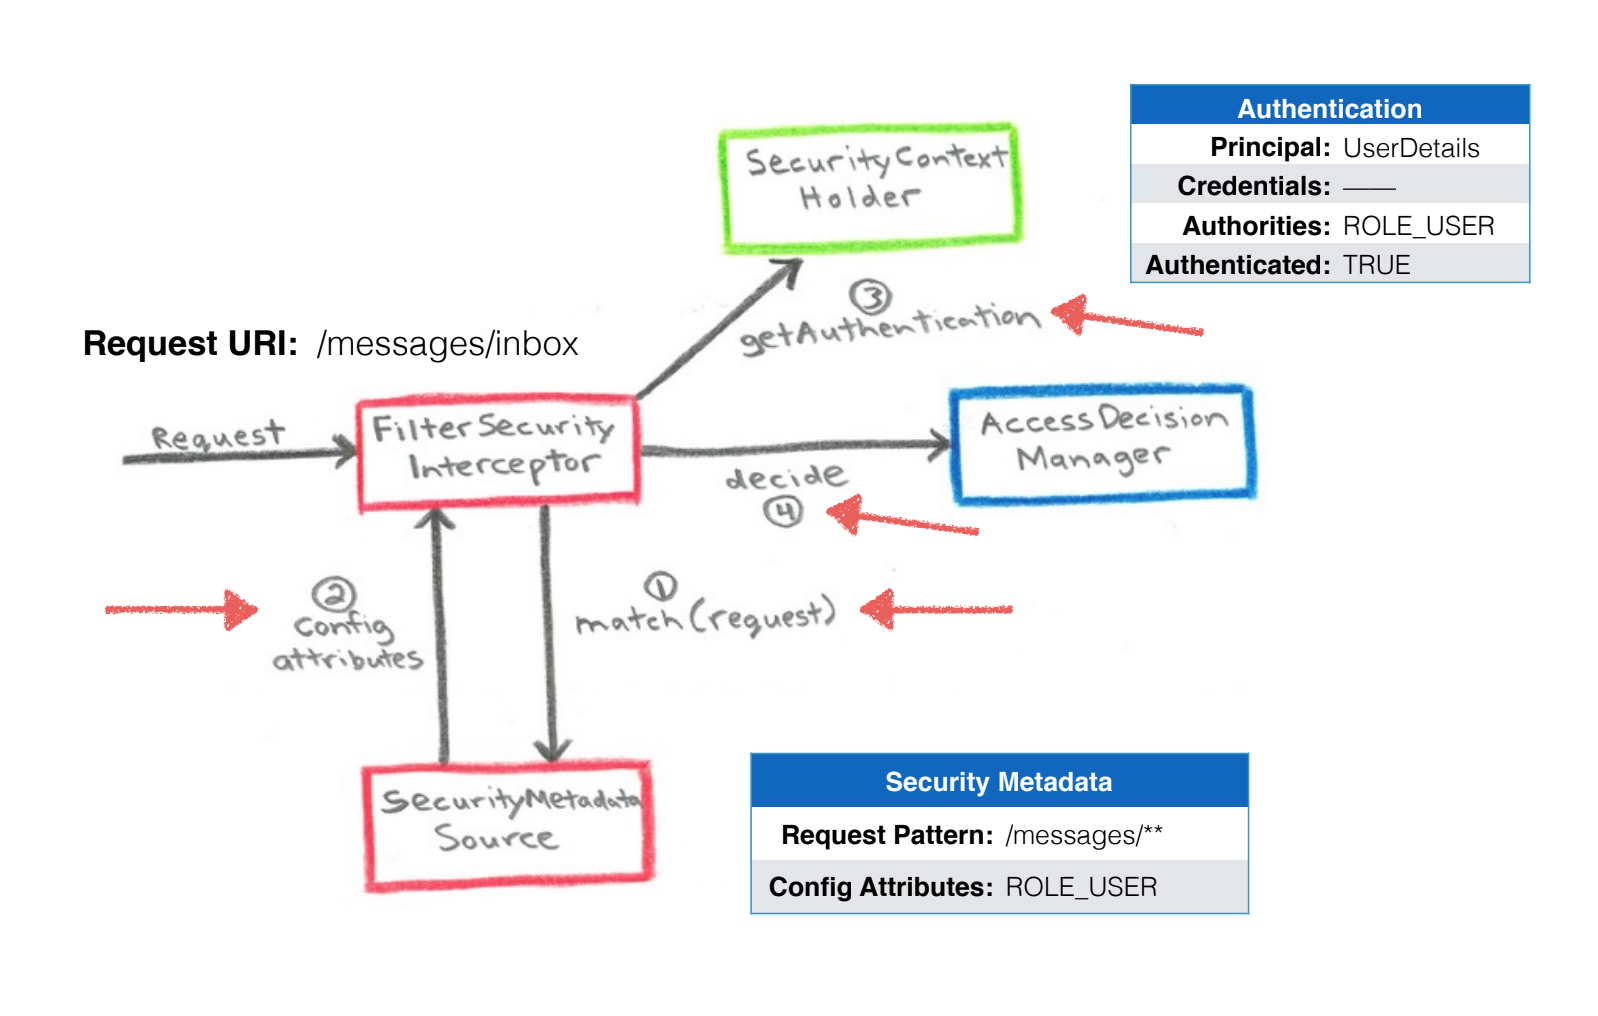 Authentication
Principal: UserDetails
Credentials: ——
Authorities: ROLE_USER
Authenticated: TRUE
SecurityContext
Holder
3
getAuthentication
Request URI: /messages/inbox
Request
FilterSecurity
Interceptor
AccessDecision
Manager
decide
4
2
config
attributes
1
match(request)
SecurityMetadata
Source
Security Metadata
Request Pattern: /messages/**
Config Attributes: ROLE_USER